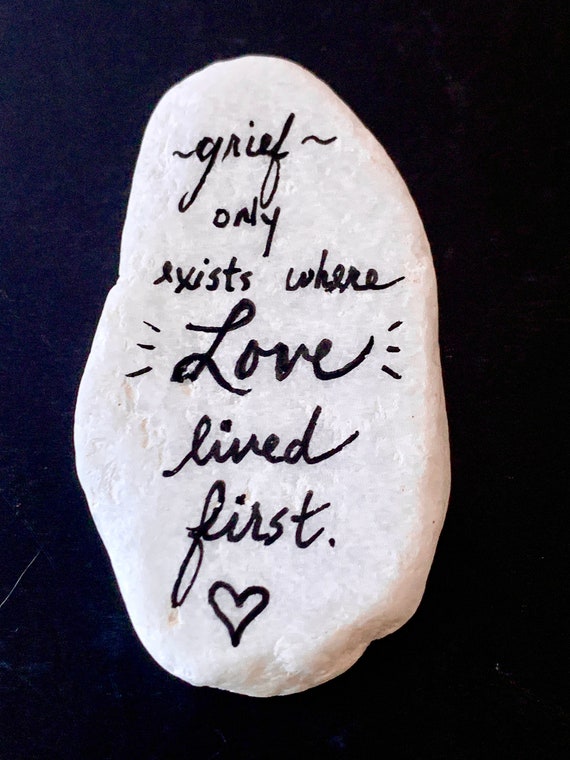 ~grief~
only
exists where
Love
lived
first.